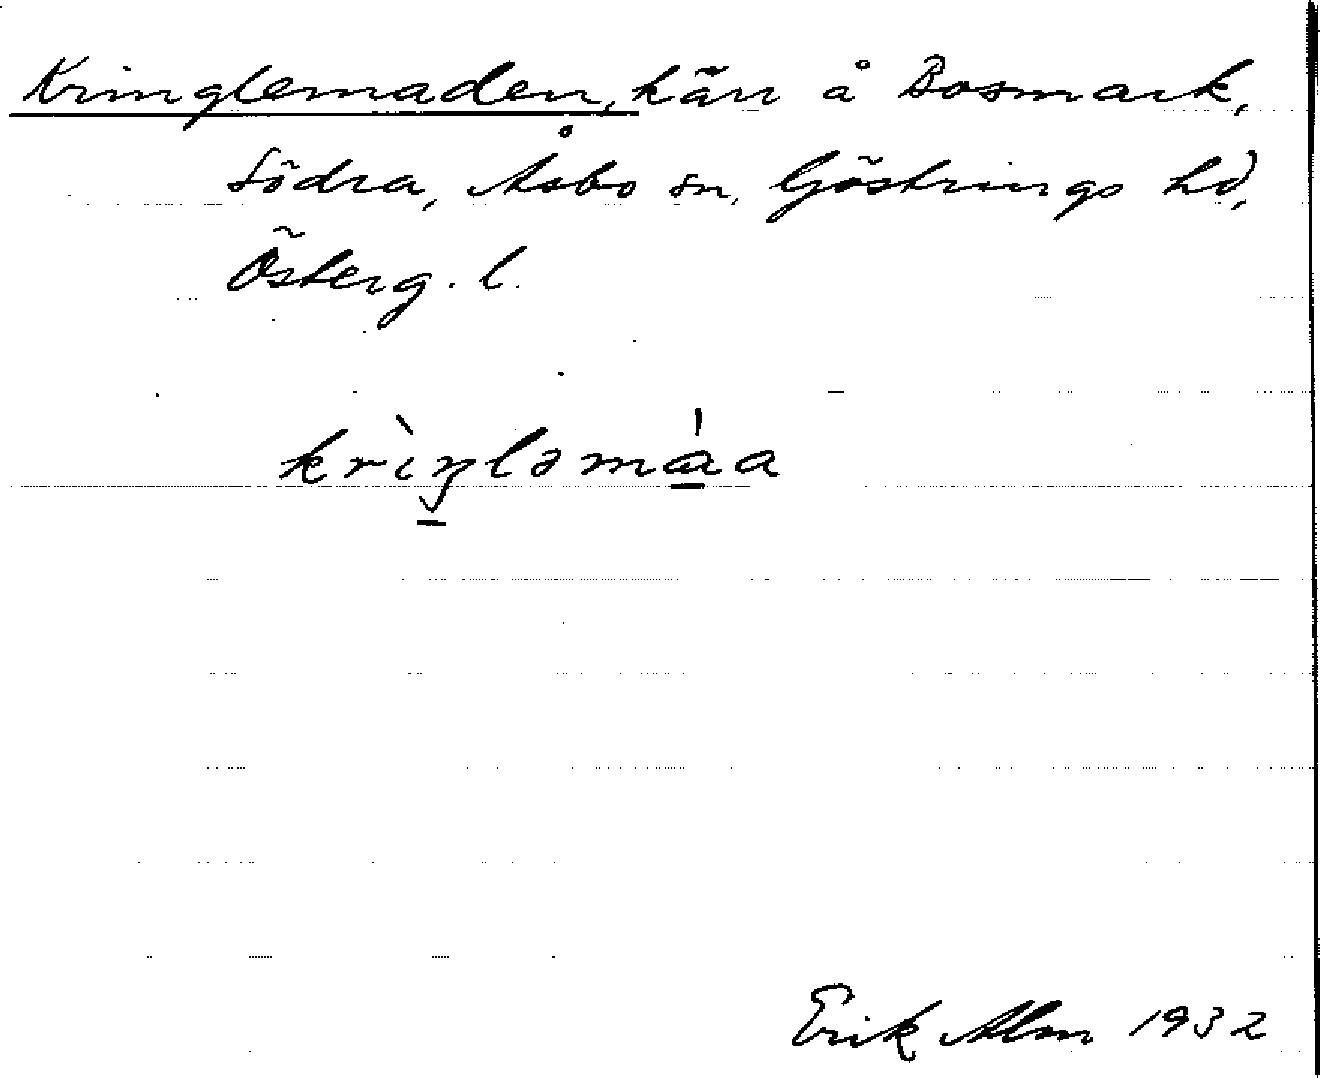 Kringlemaden, kärr å Bosmark,
Södra, Åsbo sn, Göstrings hd,
Österg. l.
krìŋləmáa
Erik Alm 1932